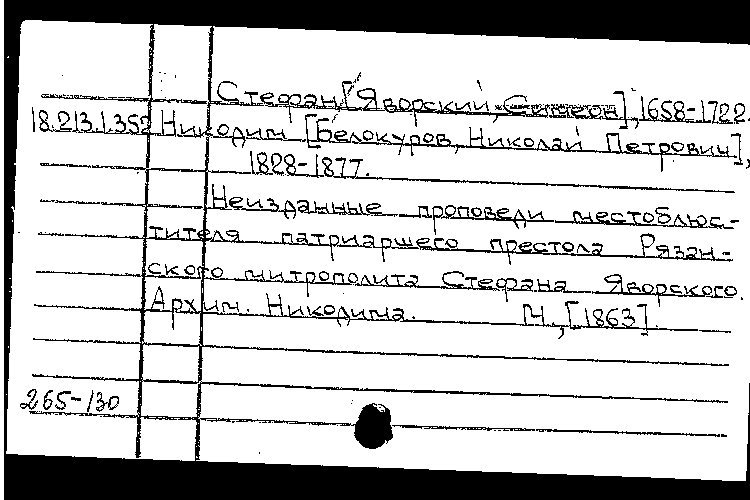 Стефан [Яворский, Симеон], 1658-1722.
18.213.1.352 Никодим [Белокуров, Николай Петрович],
1828-1877.
Неизданные проповеди местоблюс-
тителя патриаршего престола Рязан-
ского митрополита Стефана Яворского.
Архим. Никодима. М., [1863].
265-130